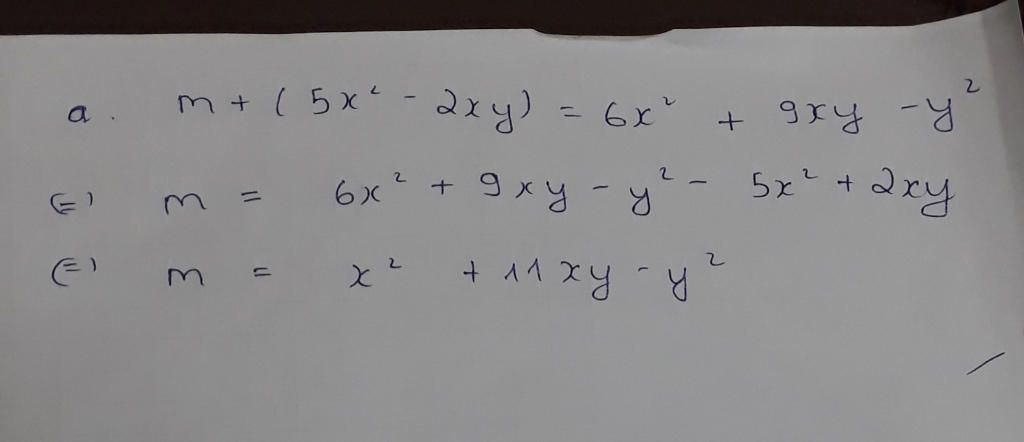 a. m + (5x² - 2xy) = 6x² + 9xy - y²
(=) m = 6x² + 9xy - y² - 5x² + 2xy
(=) m = x² + 11xy - y²